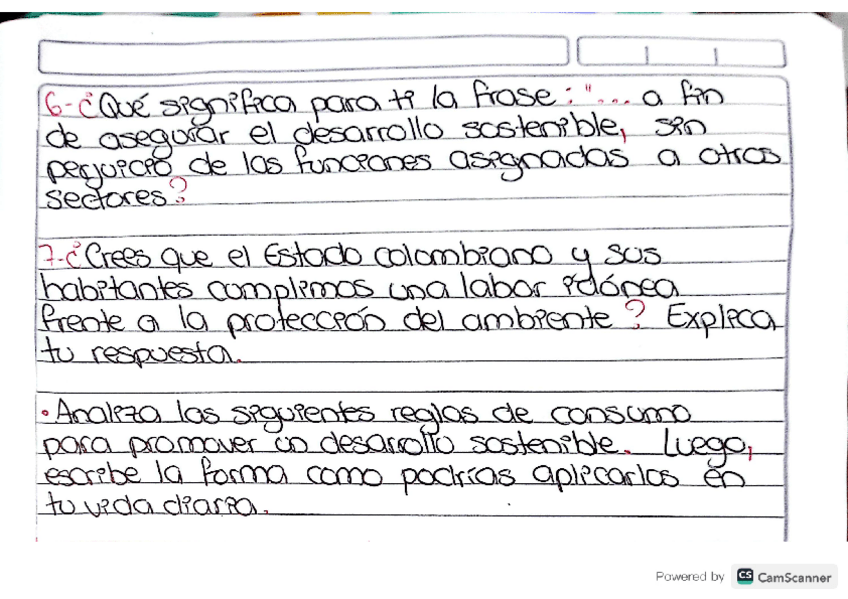 6-¿Qué significa para ti la frase: "... a fin
de asegurar el desarrollo sostenible, sin
perjuicio de las funciones asignadas a otros
sectores?
7-¿Crees que el Estado colombiano y sus
habitantes complimos una labor idónea
frente a la protección del ambiente? Explica
tu respuesta.
• Analiza las siguientes reglas de consumo
para promover un desarrollo sostenible. Luego,
escribe la forma como podrías aplicarlas en
tu vida diaria.
Powered by CS CamScanner